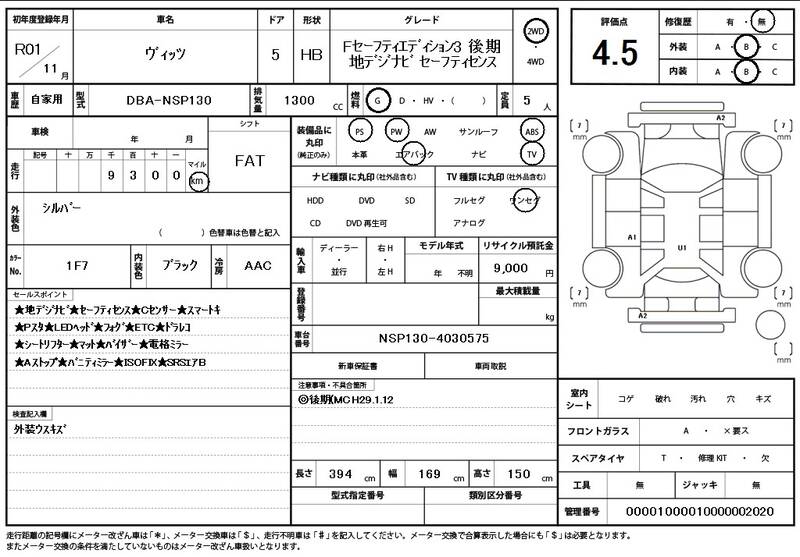 初年度登録年月 車名 ドア 形状 グレード
R01 / 11 月 ヴィッツ 5 HB Fセーフティエディション3 後期
地デジナビ セーフティセンス
2WD
・
4WD
車歴 自家用 型式 DBA-NSP130 排気量 1300 cc 燃料 G ・ D ・ HV ・ ( ) 定員 5 人
車検 年 月 シフト
FAT
走行 記号 十 万 千 百 十 一 マイル
9 3 0 0 km
装備品に丸印 (純正のみ) PS PW AW サンルーフ ABS
本革 エアバック ナビ TV
外装色 シルバー
( ) 色替車は色替と記入
ナビ種類に丸印(社外品含む) TV種類に丸印(社外品含む)
HDD DVD SD フルセグ ワンセグ
CD DVD再生可 アナログ
カラーNo. 1F7 内装色 ブラック 冷房 AAC
輸入車 ディーラー ・ 並行 右H ・ 左H モデル年式 リサイクル預託金
年 不明 9,000 円
登録番号 最大積載量
kg
セールスポイント
★地デジナビ★セーフティセンス★Cセンサー★スマートキ
★Pスタ★LEDヘッド★フォグ★ETC★ドラレコ
★シートリフター★マット★バイザー★電格ミラー
★Aストップ★バニティミラー★ISOFIX★SRSエアB
車台番号 NSP130-4030575
新車保証書 車両取説
注意事項・不具合箇所
◎後期(MC H29.1.12
検査記入欄
外装ウスキズ
長さ 394 cm 幅 169 cm 高さ 150 cm
型式指定番号 類別区分番号
評価点 4.5
修復歴 有 ・ 無
外装 A ・ B ・ C
内装 A ・ B ・ C
A2
〔 7 〕 mm
〔 7 〕 mm
A1
U1
〔 7 〕 mm
〔 7 〕 mm
A2
〔 〕 mm
室内シート コゲ 破れ 汚れ 穴 キズ
フロントガラス A ・ ×要ス
スペアタイヤ T ・ 修理KIT ・ 欠
工具 無 ジャッキ 無
管理番号 00001000010000002020
走行距離の記号欄にメーター改ざん車は「＊」、メーター交換車は「＄」、走行不明車は「＃」を記入してください。メーター交換で合算表示した場合にも「＄」は必要となります。
またメーター交換の条件を満たしていないものはメーター改ざん車扱いとなります。